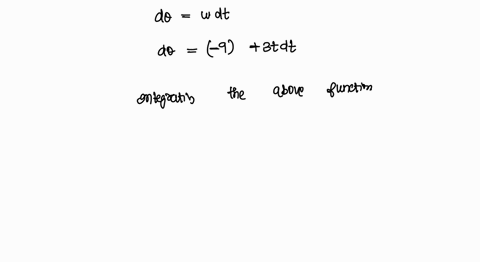 dθ = w dt
dθ = (-9) + 3t dt
Integratis the above function